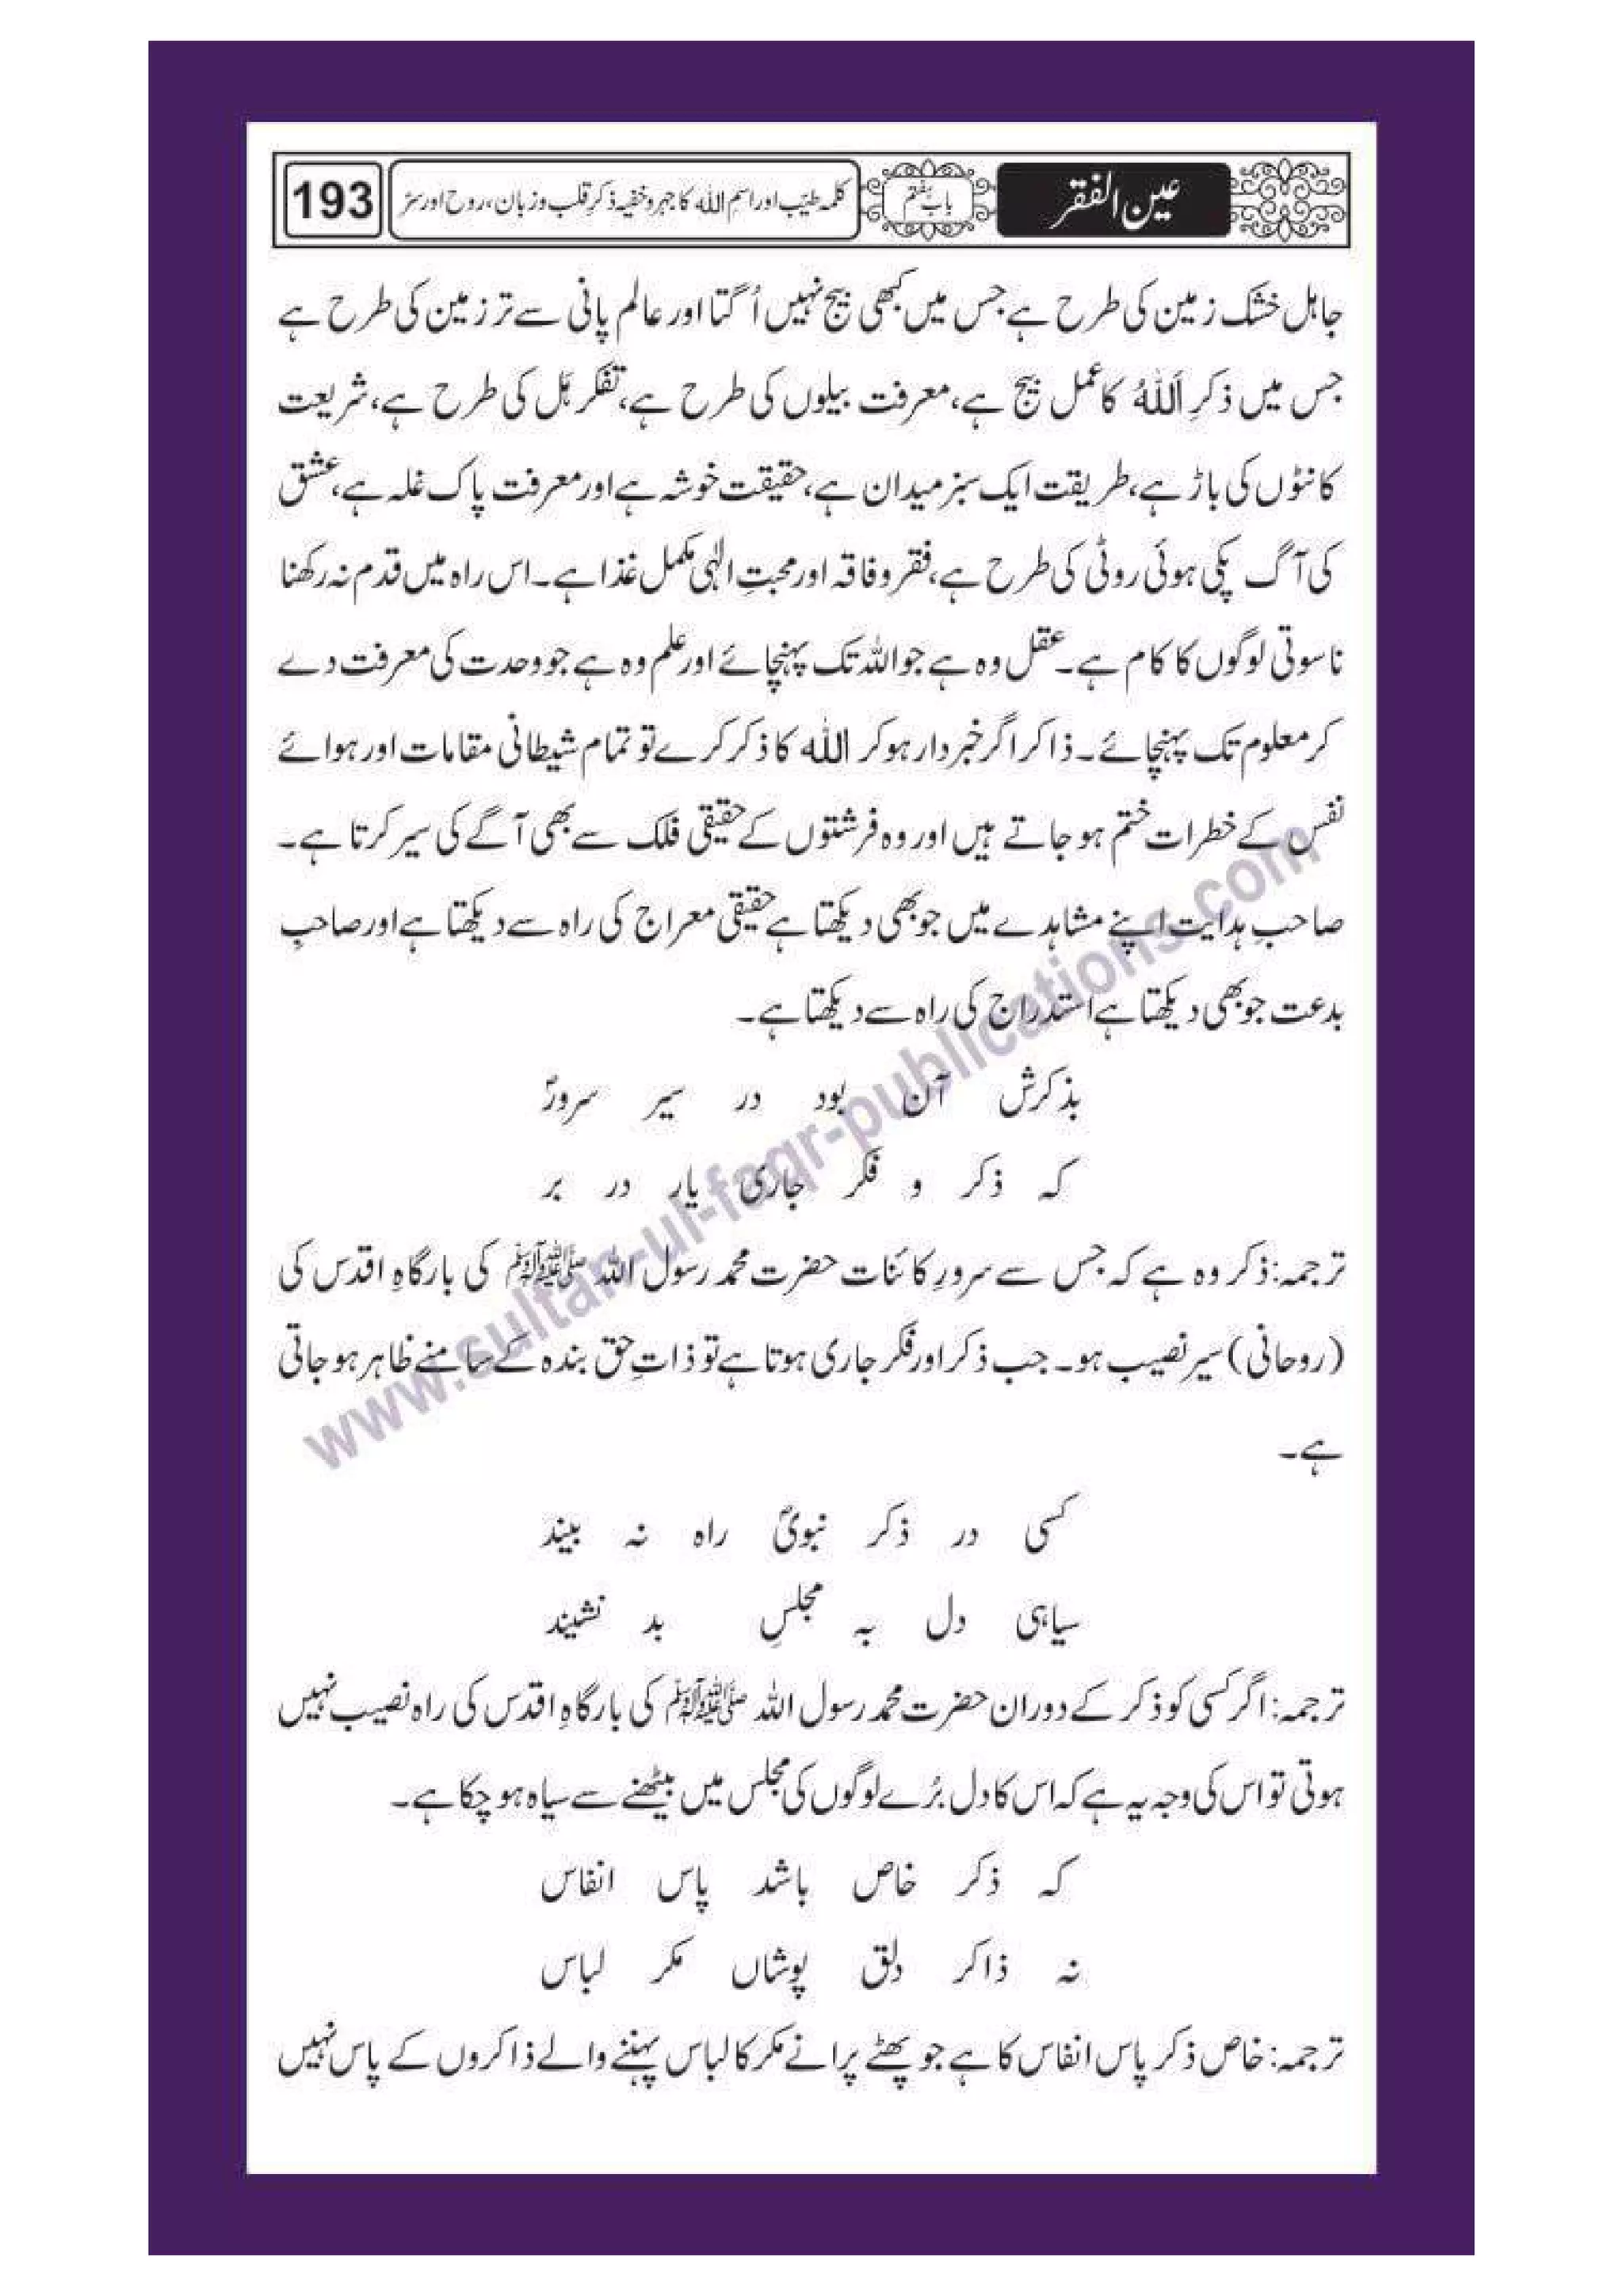 عین الفقر
باب ہفتم
کلمہ طیّب اور اسمِ اللہ کا جہر و خفیہ ذکرِ قلب و زبان، روح اور سِرّ
193
جاہل خشک زمین کی طرح ہے جس میں کبھی بیج نہیں اُگتا اور عالم پانی سے تر زمین کی طرح ہے
جس میں ذکرِ اَللّٰہُ کا عمل بیج ہے، معرفت بیلوں کی طرح ہے، تفکر ہَل کی طرح ہے، شریعت
کانٹوں کی باڑ ہے، طریقت ایک سبز میدان ہے، حقیقت خوشہ ہے اور معرفت پاک غلہ ہے، عشق
کی آگ پکی ہوئی روٹی کی طرح ہے، فقر و فاقہ اور محبتِ الٰہی مکمل غذا ہے۔ اس راہ میں قدم نہ رکھنا
ناسوتی لوگوں کا کام ہے۔ عقل وہ ہے جو اللہ تک پہنچائے اور علم وہ ہے جو وحدت کی معرفت دے
کر معلوم تک پہنچائے۔ ذاکر اگر خبردار ہو کر اللہ کا ذکر کرے تو تمام شیطانی مقامات اور ہوائے
نفس کے خطرات ختم ہو جاتے ہیں اور وہ فرشتوں کے حقیقی فلک سے بھی آگے کی سیر کرتا ہے۔
صاحبِ ہدایت اپنے مشاہدے میں جو بھی دیکھتا ہے حقیقی معراج کی راہ سے دیکھتا ہے اور صاحبِ
بدعت جو بھی دیکھتا ہے استدراج کی راہ سے دیکھتا ہے۔
بذکرش آن بود در سیر سرورؐ
کہ ذکر و فکر جاری یار در بر
ترجمہ: ذکر وہ ہے کہ جس سے سرورِ کائنات حضرت محمد رسول اللہ ﷺ کی بارگاہِ اقدس کی
(روحانی) سیر نصیب ہو۔ جب ذکر اور فکر جاری ہوتا ہے تو ذاتِ حق بندہ کے سامنے ظاہر ہو جاتی
ہے۔
کسی در ذکر نبویؐ راہ نہ بیند
سیاہی دل بہ مجلسِ بد نشیند
ترجمہ: اگر کسی کو ذکر کے دوران حضرت محمد رسول اللہ ﷺ کی بارگاہِ اقدس کی راہ نصیب نہیں
ہوتی تو اس کی وجہ یہ ہے کہ اس کا دل بُرے لوگوں کی مجلس میں بیٹھنے سے سیاہ ہو چکا ہے۔
کہ ذکر خاص باشد پاس انفاس
نہ ذاکر دلق پوشاں مکر لباس
ترجمہ: خاص ذکر پاس انفاس کا ہے جو پھٹے پرانے مکر کا لباس پہننے والے ذاکروں کے پاس نہیں
www.sultan-ul-faqr-publications.com